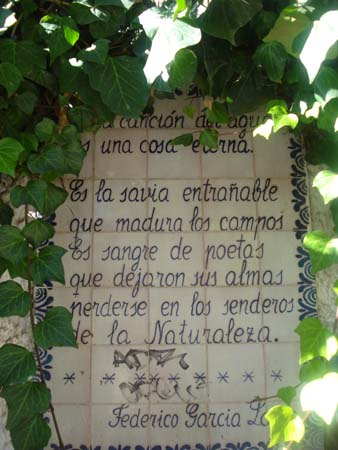 canción del agua
es una cosa eterna.
Es la savia entrañable
que madura los campos
Es sangre de poetas
que dejaron sus almas
perderse en los senderos
de la Naturaleza.
* * * * * * * *
Federico García Lo